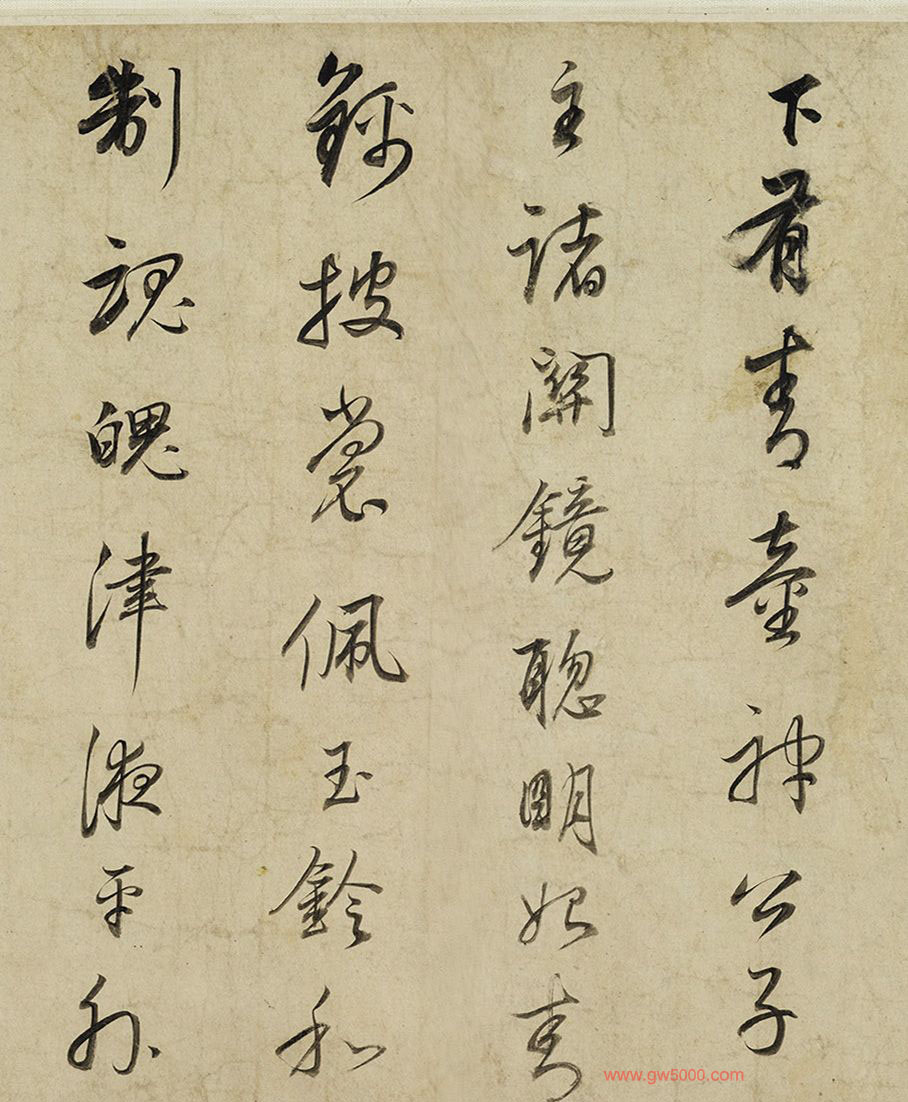 下有青童神公子
主諸關鏡聰明始青
錦披裳佩玉鈴和
制魂魄津液平外
www.gw5000.com